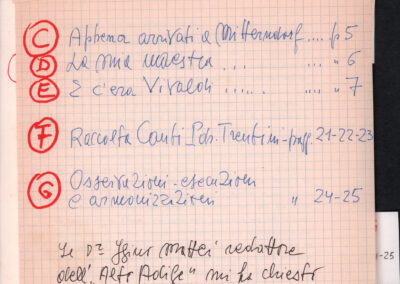 C Appena arrivati a Mitterndorf .... p 5
D La mia maestra . . . . . " 6
E E c'era Vivaldi ...... .... " 7
F Raccolta Canti Pop. Trentini - pagg. 21-22-23
G Osservazioni - esecuzioni
e armonizzazioni " 24-25
-25
Il Dr mattei redattore
dell' "Alto Adige" mi ha chiesto